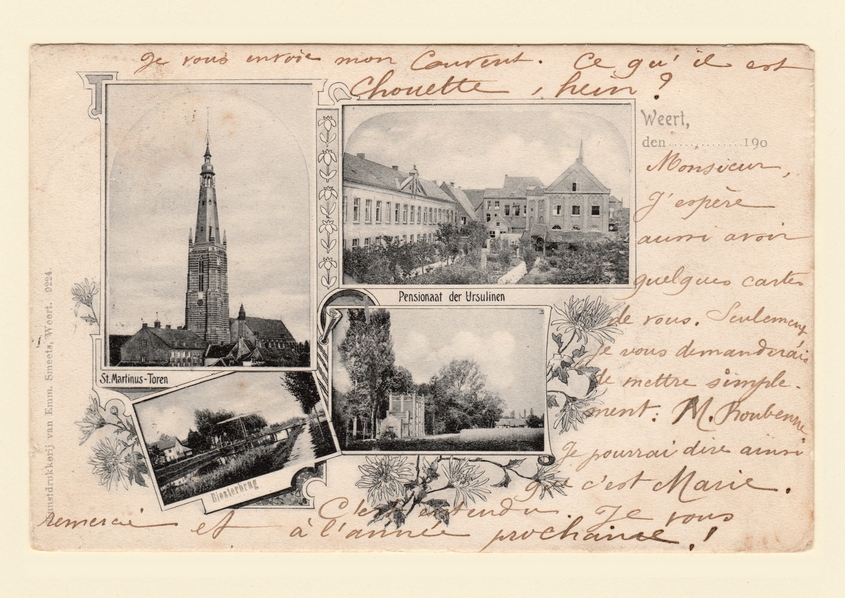 Je vous envoie mon Couvent. Ce qu'il est
Chouette, hein ?
Weert,
den ............... 190
Monsieur,
J'espère
aussi avoir
quelques cartes
de vous. Seulement
je vous demanderais
de mettre simple-
ment: M.
Je pourrai dire ainsi
c'est Marie.
C'est entendu. Je vous
remercie et à l'année prochaine !
Pensionaat der Ursulinen
St. Martinus-Toren
Biesterbrug
Kunstdrukkerij van Emm. Smeets, Weert. 9224.